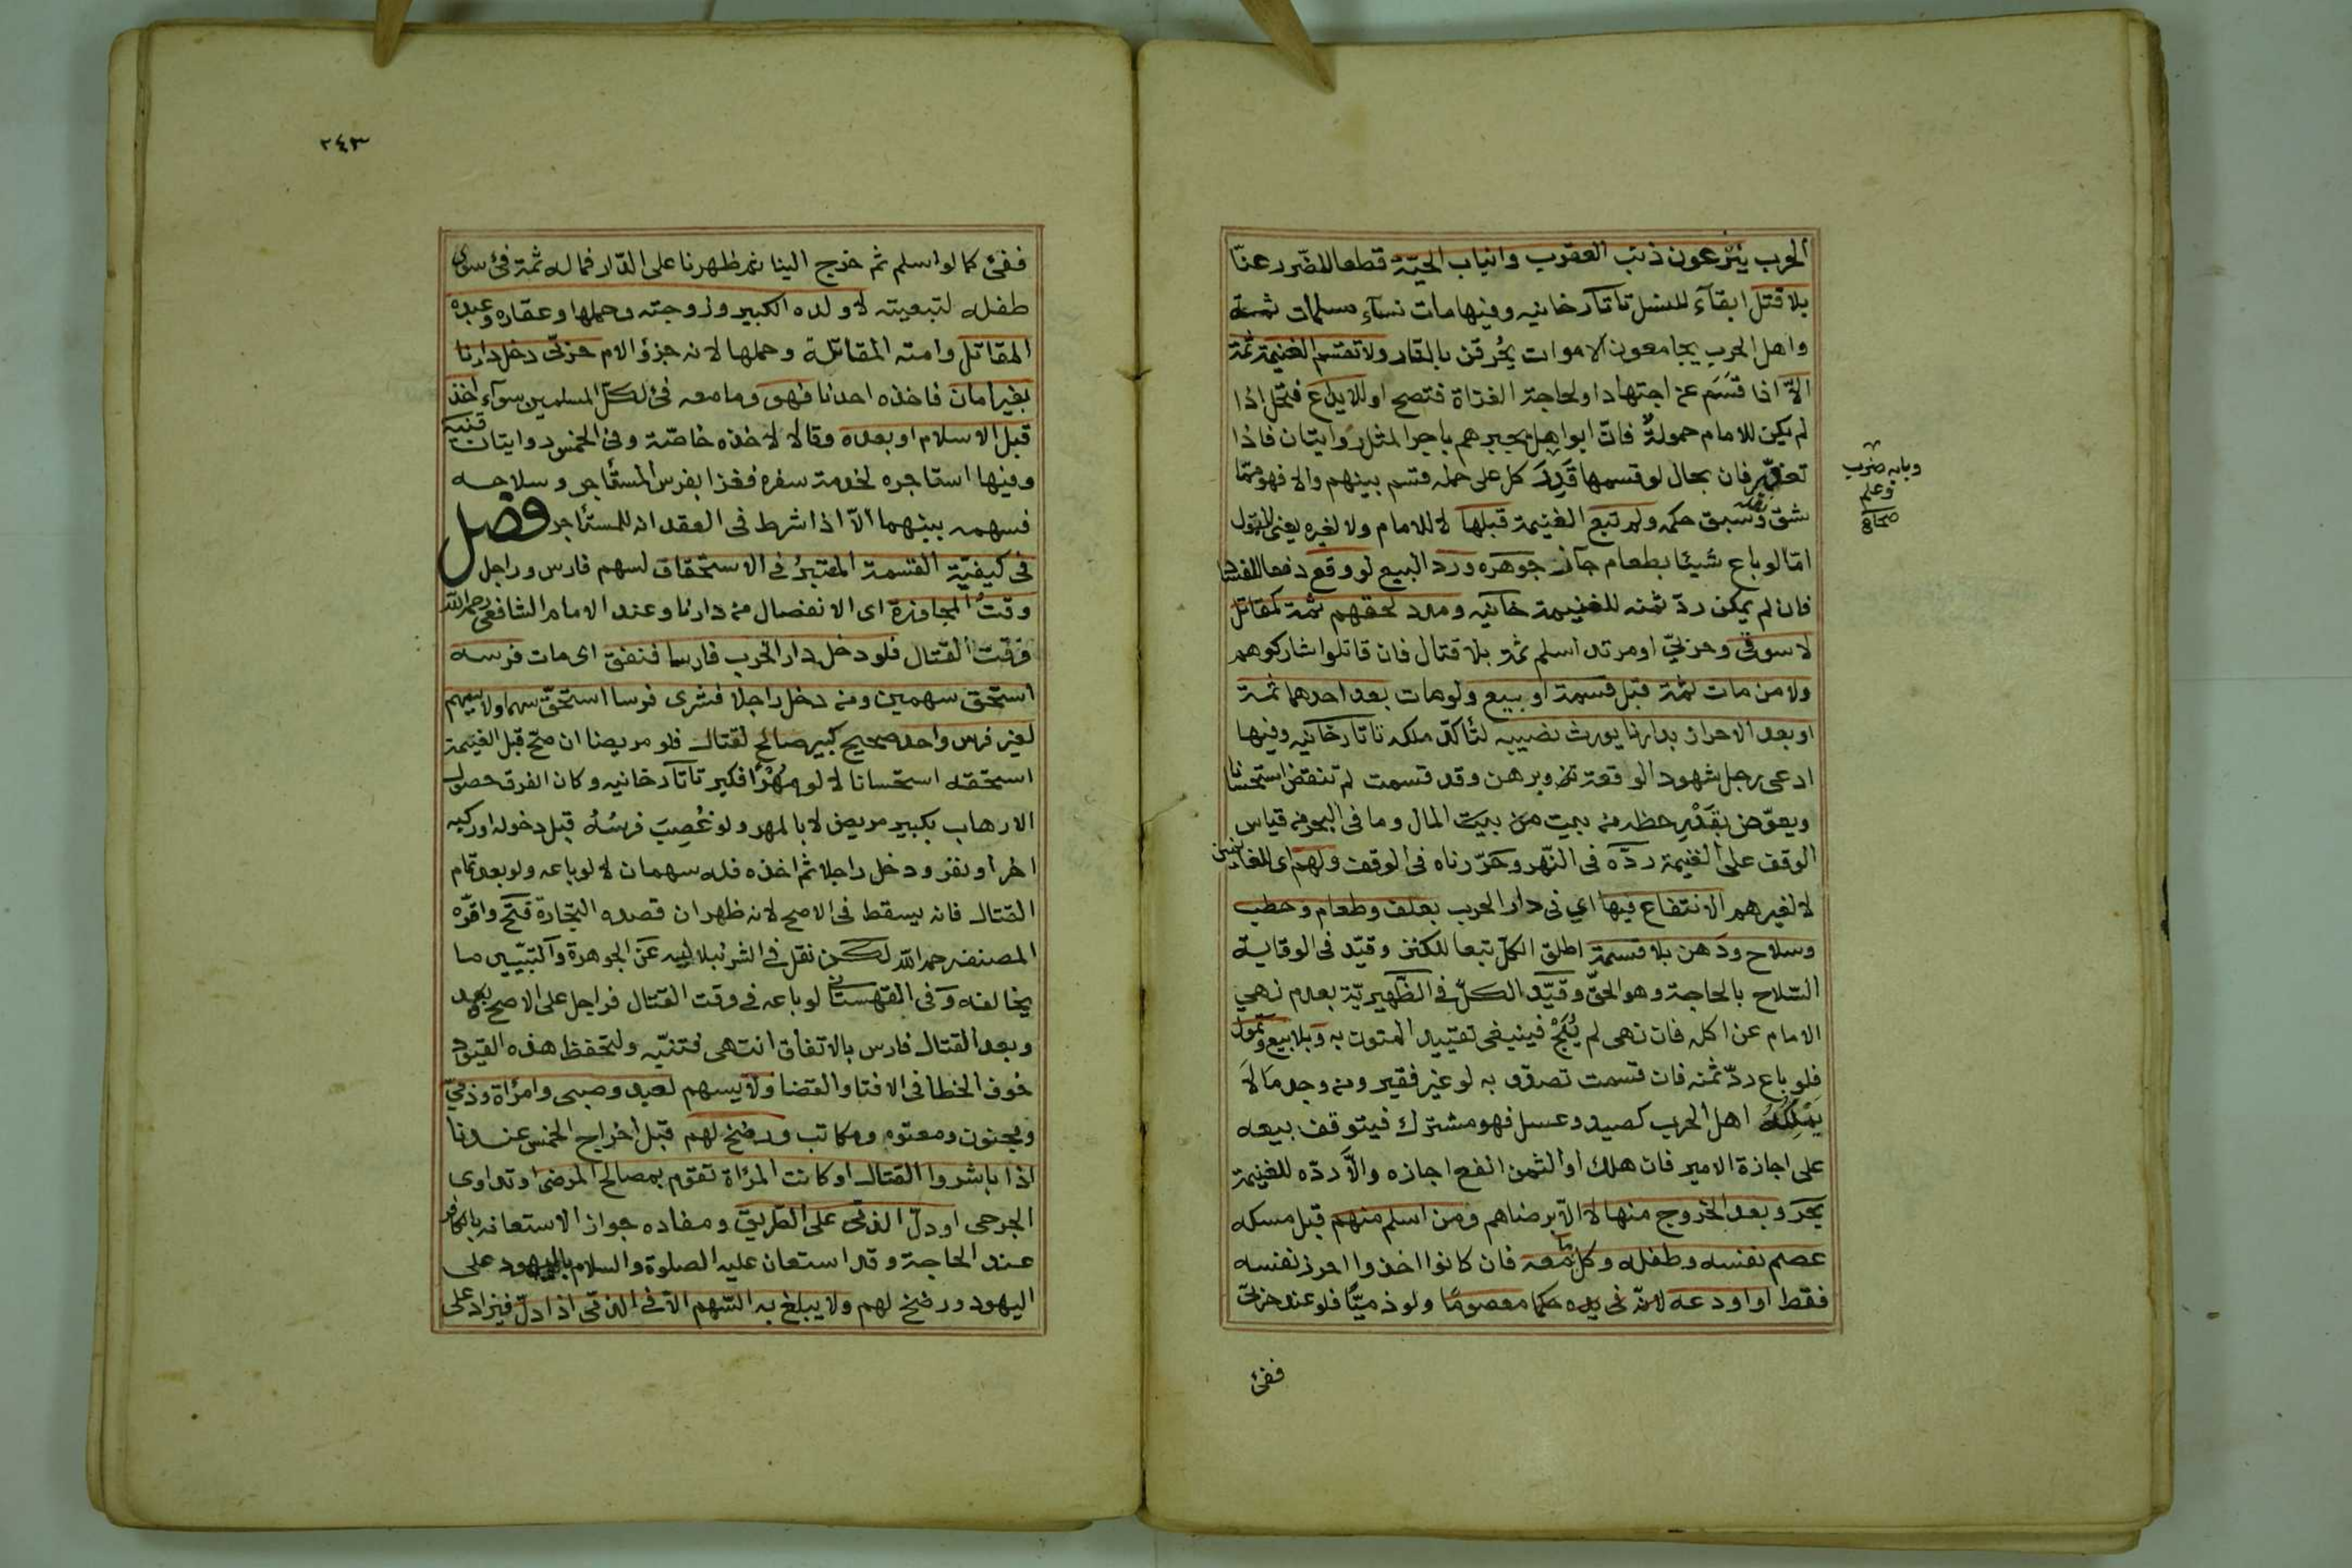 الحرب ينزعون ذنب العقرب وانياب الحيّة قطعا للضّرر عنّا
بلا قتل ابقاء للنسل تاتارخانيه وفيها مات نساء مسلمات ثمة
واهل الحرب يجامعون الاموات يُحرقن بالنار ولا تقسم الغنيمة ثمّة
الّا اذا قَسَم عن اجتهاد او لحاجة الغزاة فتصح او للايداع فتحل اذا
لم يكن للامام حمولةٌ فان ابوا هل يجبرهم باجر المثل روايتان فاذا
تعذر فان بحال لو قسمها قَدَر كل على حمله قسم بينهم والا فهو ممّا
شق نقله وسبق حكمه ولم تبع الغنيمة قبلها لا للامام ولا لغيره يعنى للتمول
امّا لو باع شيئا بطعام جاز جوهره ورد البيع لو وقع دفعا للفساد
فان لم يمكن ردّ ثمنه للغنيمة خانيه ومدد لحقهم ثمة كمقاتل
لا سوقى وحربيّ او مرتد اسلم ثمة بلا قتال فان قاتلوا شاركوهم
ولا من مات ثمة قبل قسمة او بيع ولو مات بعد احدهما ثمة
او بعد الاحراز بدارنا يورث نصيبه لتأكّد ملكه تاتارخانيه وفيها
ادعى رجل شهود الوقعة وبرهن وقد قسمت لم تنقض استحسانا
ويعوّض بقَدْرِ حظه من بيت المال وما فى البحر من قياس
الوقف على الغنيمة ردّه فى النّهر وحرّرناه فى الوقف ولهم اى للغانمين
لا لغيرهم الانتفاع فيها اي فى دار الحرب بعلف وطعام وحطب
وسلاح ودهن بلا قسمة اطلق الكلّ تبعا للكنز وقيّد فى الوقاية
السّلاح بالحاجة وهو الحقّ وقيّد الكلّ فى الظّهيريّة بعدم نهى
الامام عن اكله فان نهى لم يُبَحْ فينبغى تقييد المتون به وبلا بيع وتموّل
فلو باع ردّ ثمنه فان قسمت تصدّق به لو غير فقير ومن وجد مَا لَا
يَمْلِكُهُ اهل الحرب كصيد وعسل فهو مشترك فيتوقف بيعه
على اجازة الامير فان هلك او الثمن انفع اجازه والّا ردّه للغنيمة
بحر وبعد الخروج منها لا الّا برضاهم ومن اسلم منهم قبل مسكه
عصم نفسه وطفله وكل ما معه فان كانوا اخذوا احرز نفسه
فقط او اودعه لانّه فى يده حكما معصومًا ولو ذميًّا فلو عند حربىّ
ففئ
وبابه ضرب
وعلم
صحاح
٢٤٣
ففئ كما لو اسلم ثم خرج الينا ثم ظهرنا على الدّار فماله ثمة فئ سوى
طفله لتبعيته لا ولده الكبير وزوجته وحملها وعقاره وعبده
المقاتل وامته المقاتلة وحملها لانه جزؤ الام حربىّ دخل دارنا
بغير امان فاخذه احدنا فهو وما معه فئ لكلّ المسلمين سواء اخذ
قبل الاسلام او بعده وقالا لاخذه خاصّة وفى الخمس روايتان قنيه
وفيها استاجره لخدمة سفره فغزا بفرس المستأجر وسلاحه
فسهمه بينهما الّا اذا شرط فى العقد انه للمستأجر فصل
فى كيفيّة القسمة المعتبرُ فى الاستحقاق لسهم فارس وراجل
وقتُ المجاوزة اى الانفصال من دارنا وعند الامام الشافعى رحمه الله
وقت القتال فلو دخل دار الحرب فارسا فنفق اى مات فرسه
استحق سهمين ومن دخل راجلا فشرى فرسا استحقّ سهما ولا يسهم
لغير فرس واحد صحيح كبير صالح لقتال فلو مريضا ان صح قبل الغنيمة
استحقه استحسانا لا لو مُهْرًا فكبر تاتارخانيه وكان الفرق حصول
الارهاب بكبير مريض لا بالمهر ولو غُصِبَ فرسُهُ قبل دخوله او ركبه
اخر او نفر ودخل راجلا ثم اخذه فله سهمان لا لو باعه ولو بعد تمام
القتال فانه يسقط فى الاصح لانه ظهر ان قصده التجارة فتح واقرّه
المصنف رحمه الله لكن نقل فى الشرنبلاليه عن الجوهرة والتبيين ما
يخالفه وفى القهستانى لو باعه فى وقت القتال فراجل على الاصح
وبعد القتال فارس بالاتفاق انتهى فتنبّه ولتحفظ هذه القيود
خوف الخطا فى الافتا والقضا ولا يسهم لعبد وصبى وامرأة وذمىّ
ومجنون ومعتوه ومكاتب ورضخ لهم قبل اخراج الخمس عندنا
اذا باشروا القتال او كانت المرأة تقوم بمصالح المرضى او تداوى
الجرحى او دلّ الذمى على الطريق ومفاده جواز الاستعانه بالكافر
عند الحاجة وقد استعان عليه الصلوة والسلام باليهود على
اليهود ورضخ لهم ولا يبلغ به السّهم الا فى الذمّى اذا دلّ فيزاد على